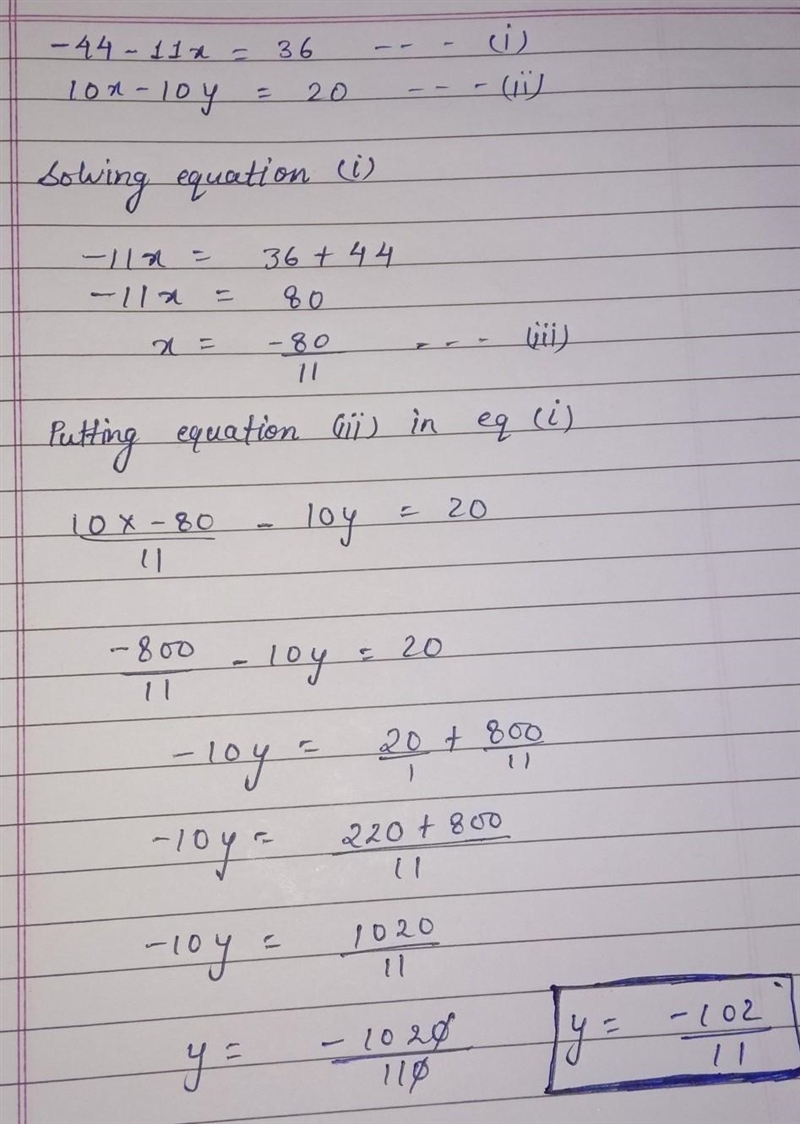 -44 - 11x = 36 --- (i)
10x - 10y = 20 --- (ii)
Solving equation (i)
-11x = 36 + 44
-11x = 80
x = -80/11 --- (iii)
Putting equation (iii) in eq (i)
10 x -80/11 - 10y = 20
-800/11 - 10y = 20
-10y = 20/1 + 800/11
-10y = 220 + 800/11
-10y = 1020/11
y = -1020/110 y = -102/11